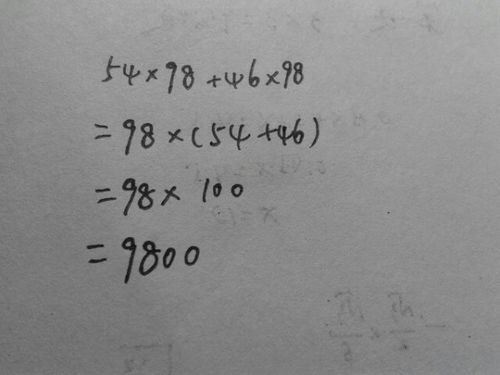 54×98+46×98
=98×(54+46)
=98×100
=9800